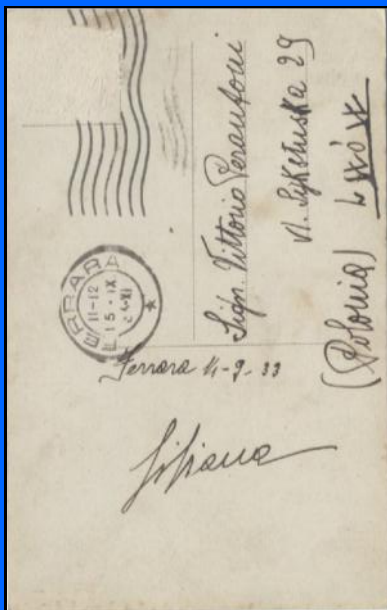 FERRARA
11-12
15·IX
Sign. Vittorio Perantoni
Ul. Sykstuska 29
(Polonia) Lwów
Ferrara 14-9-33
Liliana